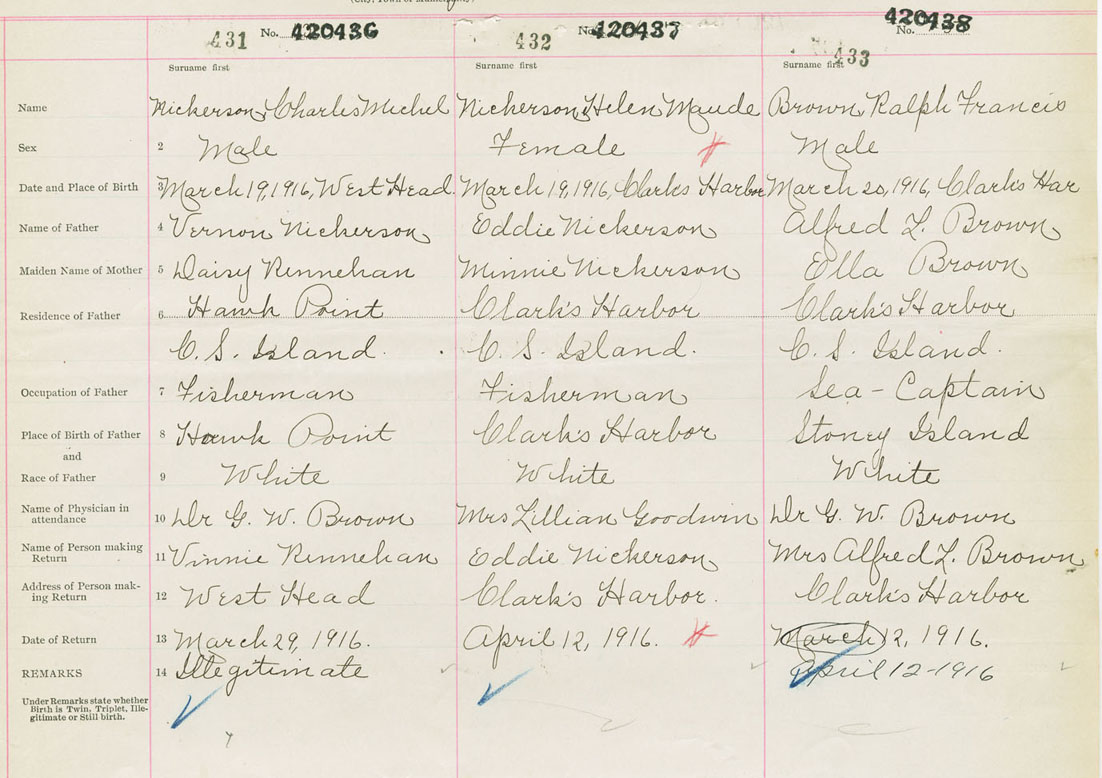 (City, Town or Municipality)
431 No. 420436 432 No. 420437 433 No. 420438
Surname first Surname first Surname first
Name Nickerson, Charles Michel Nickerson, Helen Maude Brown, Ralph Francis
Sex 2 Male Female Male
Date and Place of Birth 3 March 19, 1916, West Head. March 19, 1916, Clark's Harbor March 20, 1916, Clark's Har
Name of Father 4 Vernon Nickerson Eddie Nickerson Alfred L. Brown
Maiden Name of Mother 5 Daisy Kennehan Minnie Nickerson Ella Brown
Residence of Father 6 Hawk Point Clark's Harbor Clark's Harbor
C. S. Island. C. S. Island. C. S. Island.
Occupation of Father 7 Fisherman Fisherman Sea - Captain
Place of Birth of Father 8 Hawk Point Clark's Harbor Stoney Island
and
Race of Father 9 White White White
Name of Physician in
attendance 10 Dr G. W. Brown Mrs Lillian Goodwin Dr G. W. Brown
Name of Person making
Return 11 Vinnie Kennehan Eddie Nickerson Mrs Alfred L. Brown
Address of Person mak-
ing Return 12 West Head Clark's Harbor. Clark's Harbor
Date of Return 13 March 29, 1916. April 12, 1916. March 12, 1916.
REMARKS 14 Illegitimate April 12-1916
Under Remarks state whether
Birth is Twin, Triplet, Ille-
gitimate or Still birth.